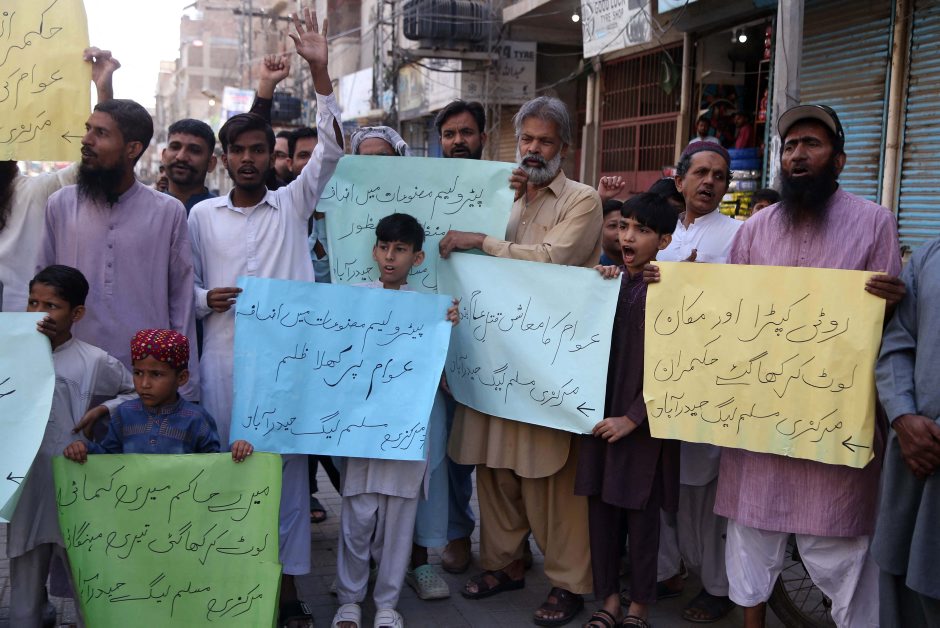 حکمر
عوام کی
مرکزی
GOOD LUCK
TYRE SHOP
TYRE
عبداللہ
پیٹرولیم مصنوعات میں اضافہ
نامنظور
حیدرآباد
پیٹرولیم مصنوعات میں اضافہ
عوام پر کھلا ظلم
مرکزی مسلم لیگ حیدرآباد
عوام کا معاشی قتل عام بند
مرکزی مسلم لیگ حیدرآباد
روٹی کپڑا اور مکان
لوٹ کر کھا گئے حکمران
مرکزی مسلم لیگ حیدرآباد
میرے حاکم میری کمائی
لوٹ کر کھا گئی تیری مہنگائی
مرکزی مسلم لیگ حیدرآباد